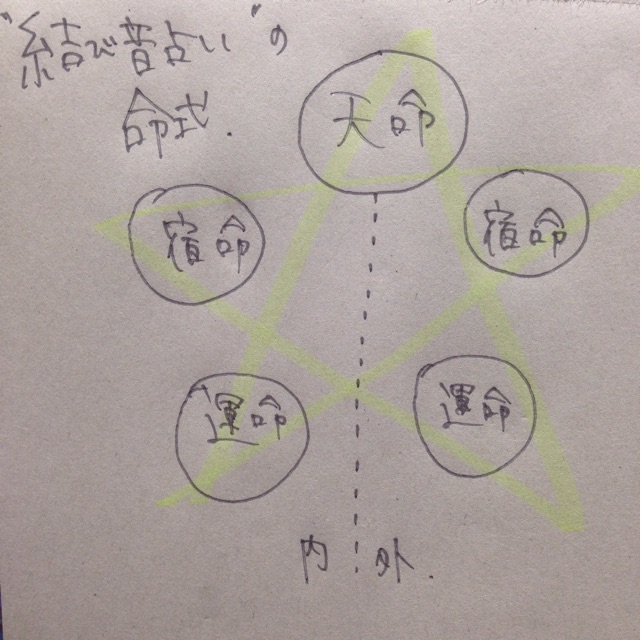 "結び昔占い"の
命式.
天命
宿命
宿命
運命
運命
内 外.